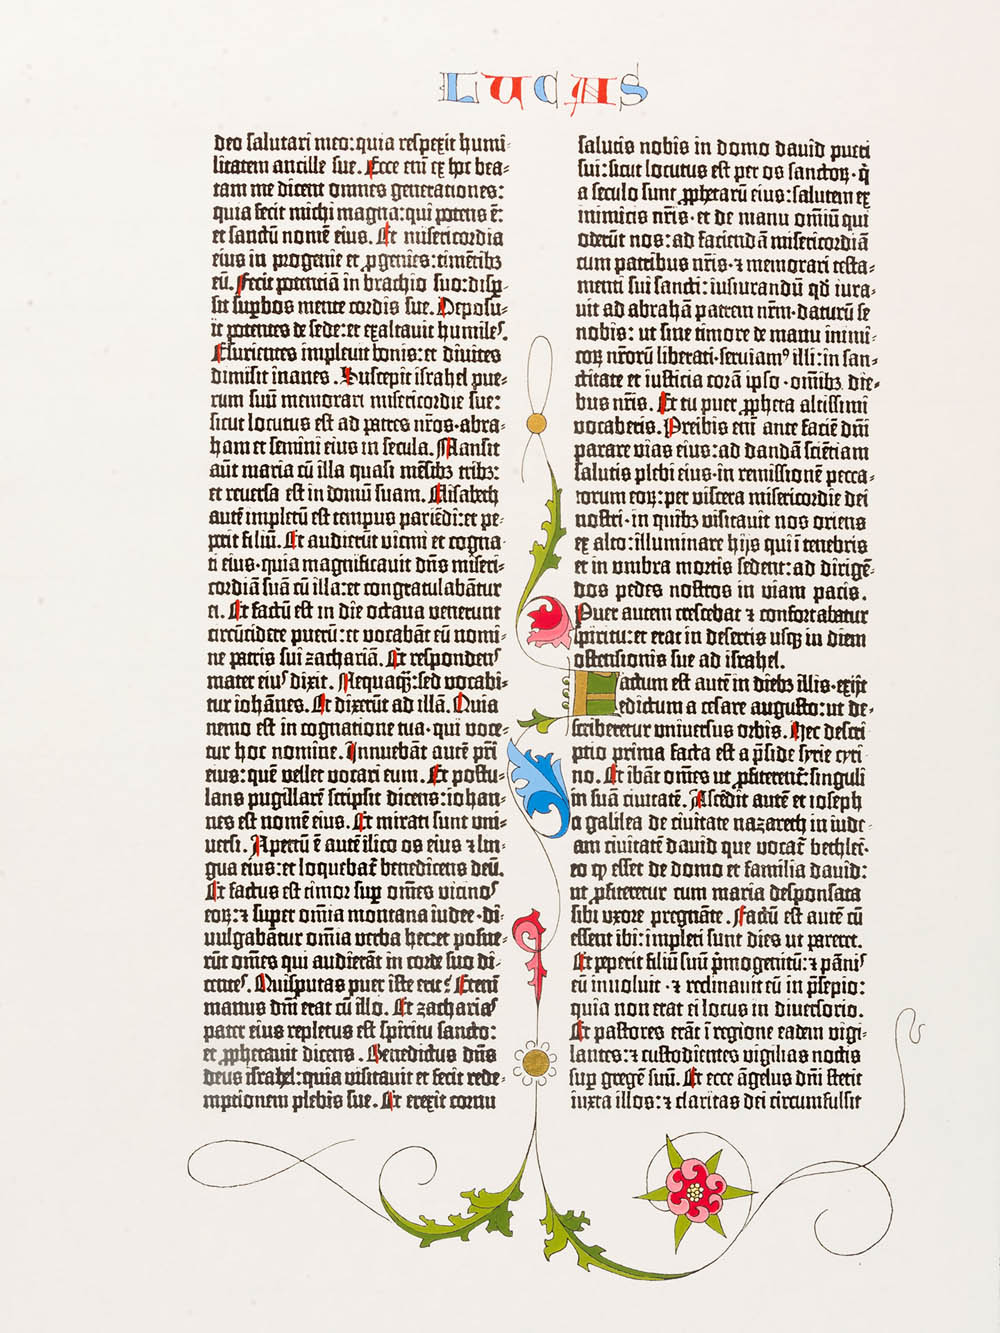 LUCAS
deo salutari meo: quia respexit humi-
litatem ancille sue. Ecce eni ex hoc bea-
tam me dicent omnes generationes:
quia fecit michi magna: qui potens ē:
et sanctū nomē eius. Et misericordia
eius in progenie et ꝓgenies: timētibꝫ
eū. Fecit potentiā in brachio suo: disꝑ-
sit suꝑbos mente cordis sue. Deposu-
it potentes de sede: et exaltauit humilesͬ.
Esurientes impleuit bonis: et diuites
dimisit inanes. Suscepit israhel pue-
rum suū memorari misericordie sue:
sicut locutus est ad patres nr̄os · abra-
ham et semini eius in secula. Mansit
aūt maria cū illa quasi mēsibꝫ tribꝫ:
et reuersa est in domū suam. Elisabeth
autē impletū est tempus pariēdi: et pe-
perit filiū. Et audierūt vicini et cogna-
ti eius · quia magnificauit dn̄s miseri-
cordiā suā cū illa: et congratulabātur
ei. Et factū est in die octaua venerunt
circūcidere puerū: et vocabāt eū nomi-
ne patris sui zachariā. Et respondens
mater eiꝰ dixit. Nequaqꝫ: sed vocabi-
tur iohānes. Et dixerūt ad illā. Quia
nemo est in cognatione tua · qui voce-
tur hoc nomine. Innuebāt autē pr̄i
eius: quē vellet vocari eum. Et postu-
lans pugillarē scripsit dicens: iohan-
nes est nomē eius. Et mirati sunt vni-
uersi. Apertū ē autē ilico os eius ⁊ lin-
gua eius: et loquebat᷑ benedicens deū.
Et factus est timor suꝑ omēs vicinos
eoꝝ: ⁊ super om̄ia montana iudee · di-
vulgabātur om̄ia verba hec: et posue-
rūt omēs qui audierāt in corde suo di-
centes. Quisputas puer iste erit? Etenī
manus dn̄i erat cū illo. Et zacharias
pater eius repletus est spiritu sancto:
et ꝓphetauit dicens. Benedictus dn̄s
deus israhel: quia visitauit et fecit rede-
mptionem plebis sue. Et erexit cornu
salutis nobis in domo dauid pueri
sui: sicut locutus est per os sanctoꝝ · q̄
a seculo sunt ꝓphetarū eius: salutem ex
inimicis nr̄is · et de manu omīū qui
oderūt nos: ad faciendā misericordiā
cum patribus nr̄is · ⁊ memorari testa-
menti sui sancti: iusiurandū qd̄ iura-
uit ad abrahā patrem nr̄m · daturū se
nobis: ut sine timore de manu inimi-
coꝝ nr̄orū liberati · seruiamꝰ illi: in san-
ctitate et iusticia corā ipso · omībꝫ die-
bus nr̄is. Et tu puer ꝓpheta altissimi
vocaberis. Preibis eni ante faciē dn̄i
parare vias eius: ad dandā sciētiam
salutis plebi eius · in remissionē pecca-
torum eoꝝ: per viscera misericordie dei
nostri · in quibꝫ visitauit nos oriens
ex alto: illuminare hijs qui ī tenebris
et in vmbra mortis sedent: ad dirigē-
dos pedes nostros in viam pacis.
Puer autem crescebat ⁊ confortabatur
spiritu: et erat in desertis usqꝫ in diem
ostensionis sue ad israhel.
Factum est autē in diebꝫ illis · exijt
edictum a cesare augusto: ut de-
scriberetur vniuersus orbis. Hec descri-
ptio prima facta est a p̄side syrie cyri-
no. Et ibāt omēs ut ꝓfiterent᷑: singuli
in suā ciuitatē. Ascēdit autē et ioseph
a galilea de ciuitate nazareth in iude-
am ciuitatē dauid que vocat᷑ bethleē:
eo ꝙ esset de domo et familia dauid:
ut ꝓfiteretur cum maria desponsata
sibi vxore pregnāte. Factū est autē cū
essent ibi: impleti sunt dies ut pareret.
Et peperit filiū suū p̄mogenitū: ⁊ pānis
eū inuoluit · ⁊ reclinauit eū in p̄sepio:
quia non erat ei locus in diuersorio.
Et pastores erāt ī regione eadem vigi-
lantes: ⁊ custodientes vigilias noctis
suꝑ gregē suū. Et ecce āgelus dn̄i stetit
iuxta illos: ⁊ claritas dei circumfulsit